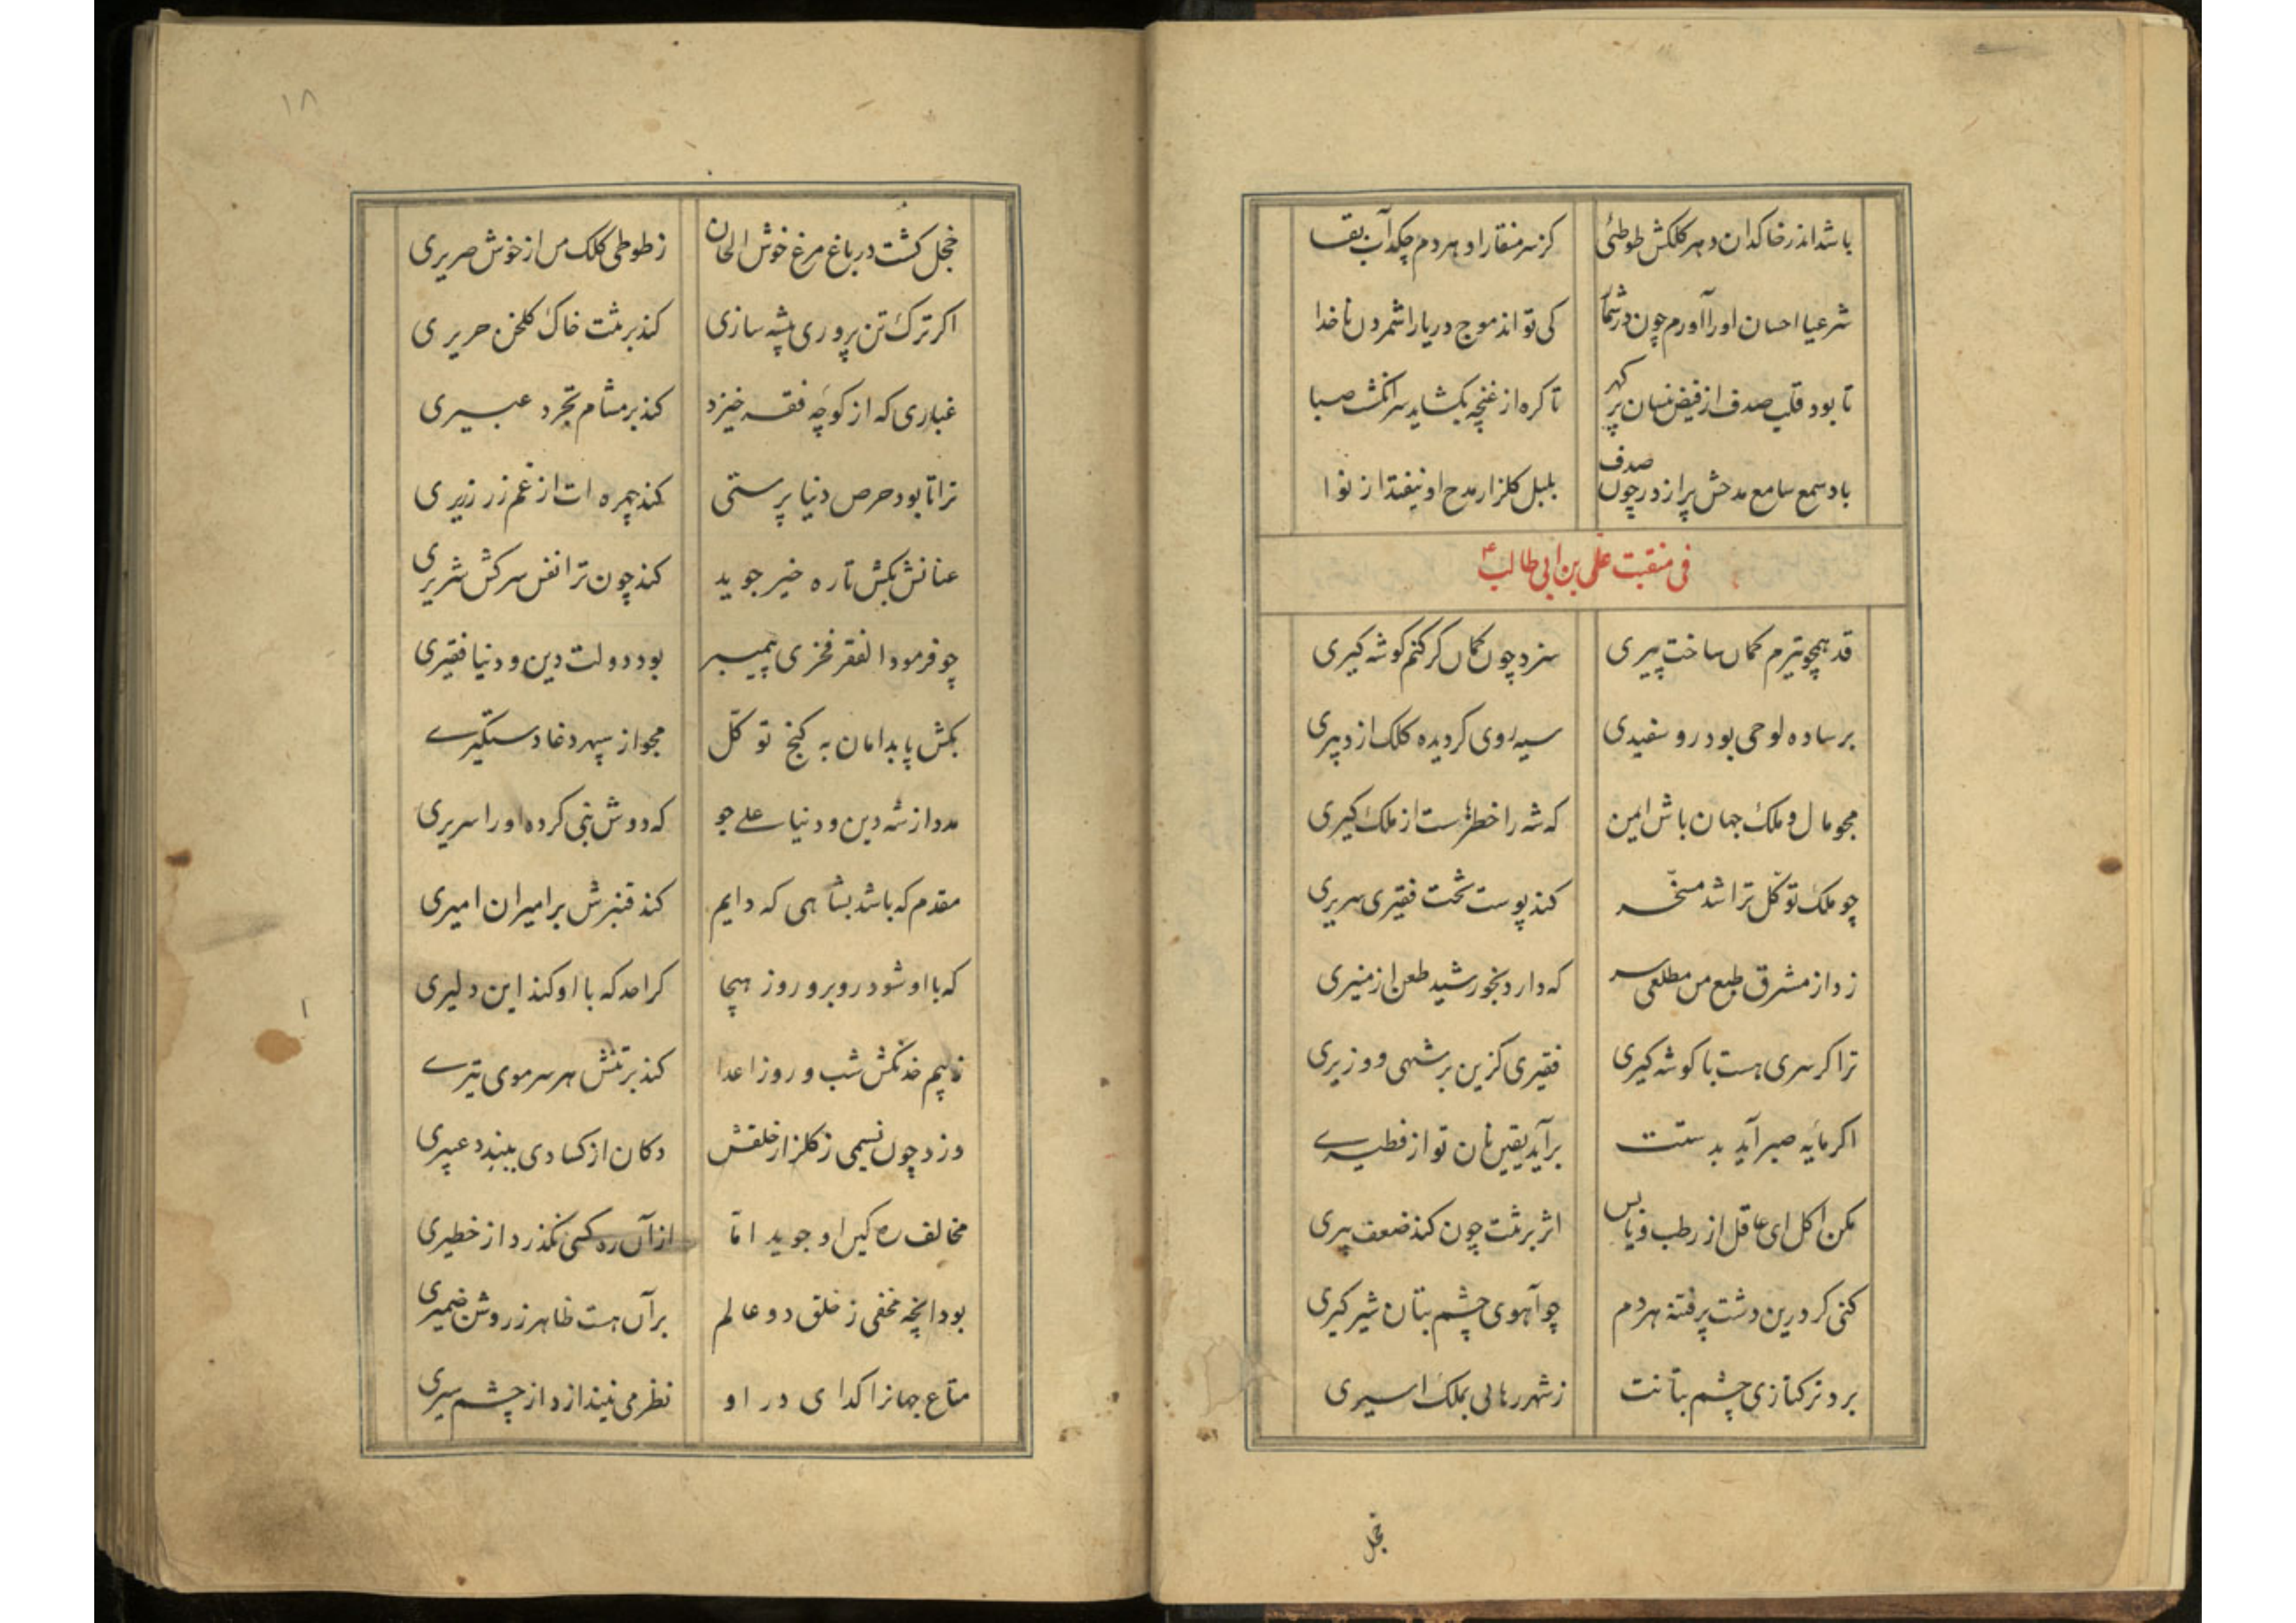 باشد اندر خاکدان دهر کلکش طوطئی
کز سر منقار او هر دم چکد آب بقا
شرعیا احسان او را آورم چون در شمار
کی تواند موج دریا را شمردن ناخدا
تا بود قلب صدف از فیض نیسان پر کهر
تا کره از غنچه بکشاید سر انکشت صبا
باد سمع سامع مدحش پر از در چون صدف
بلبل کلزار مدح او نیفتد از نوا
فی منقبت علی بن ابی طالب ع
قد همچو تیرم کمان ساخت پیری
سزد چون کمان کر کنم کوشه کیری
بر ساده لوحی بود رو سفیدی
سیه روی کردیده کلک از دبیری
مجو مال و ملک جهان باش ایمن
که شه را خطرهاست از ملک کیری
چو ملک توکل ترا شد مسخر
کند پوست تخت فقیری سریری
زد از مشرق طبع من مطلعی سر
که دارد بخورشید طعن از منیری
ترا کر سری هست با کوشه کیری
فقیری کزین بر شهی و وزیری
اکر مایه صبر آید بدستت
برآید یقین نان تو از فطیری
مکن اکل ای عاقل از رطب و یابس
اثر بر تنت چون کند ضعف پیری
کنی کر درین دشت پر فتنه هر دم
چو آهوی چشم بتان شیر کیری
برد ترکتازی چشم بتانت
ز شهر رهایی بملک اسیری
خجل
۱۸
خجل کشت در باغ مرغ خوش الحان
ز طوطی کلک من از خوش صریری
اکر ترک تن پروری پیشه سازی
کند بر تنت خاک کلخن حریری
غباری که از کوچه فقر خیزد
کند بر مشام تجرد عبیری
ترا تا بود حرص دنیا پرستی
کند چهره ات از غم زر زریری
عنانش بکش تا ره خیر جوید
کند چون ترا نفس سرکش شریری
چو فرمود الفقر فخری پیمبر
بود دولت دین و دنیا فقیری
بکش پا بدامان به کنج توکل
مجو از سپهر دغا دستکیری
مدد از شه دین و دنیا علی جو
که دوش نبی کرده او را سریری
مقدم که باشد بشاهی که دایم
کند قنبرش بر امیران امیری
که با او شود روبرو روز هیجا
کرا حد که با او کند این دلیری
ز بیم خدنکش شب و روز اعدا
کند بر تنش هر سر موی تیری
وزد چون نسیمی ز کلزار خلقش
دکان از کسادی ببندد عبیری
مخالف ره کین او جوید اما
از آن ره کسی نکذرد از خطیری
بود آنچه مخفی ز خلق دو عالم
بر آن هست ظاهر ز روشن ضمیری
متاع جهانرا کدای در او
نظر می نیندازد از چشم سیری